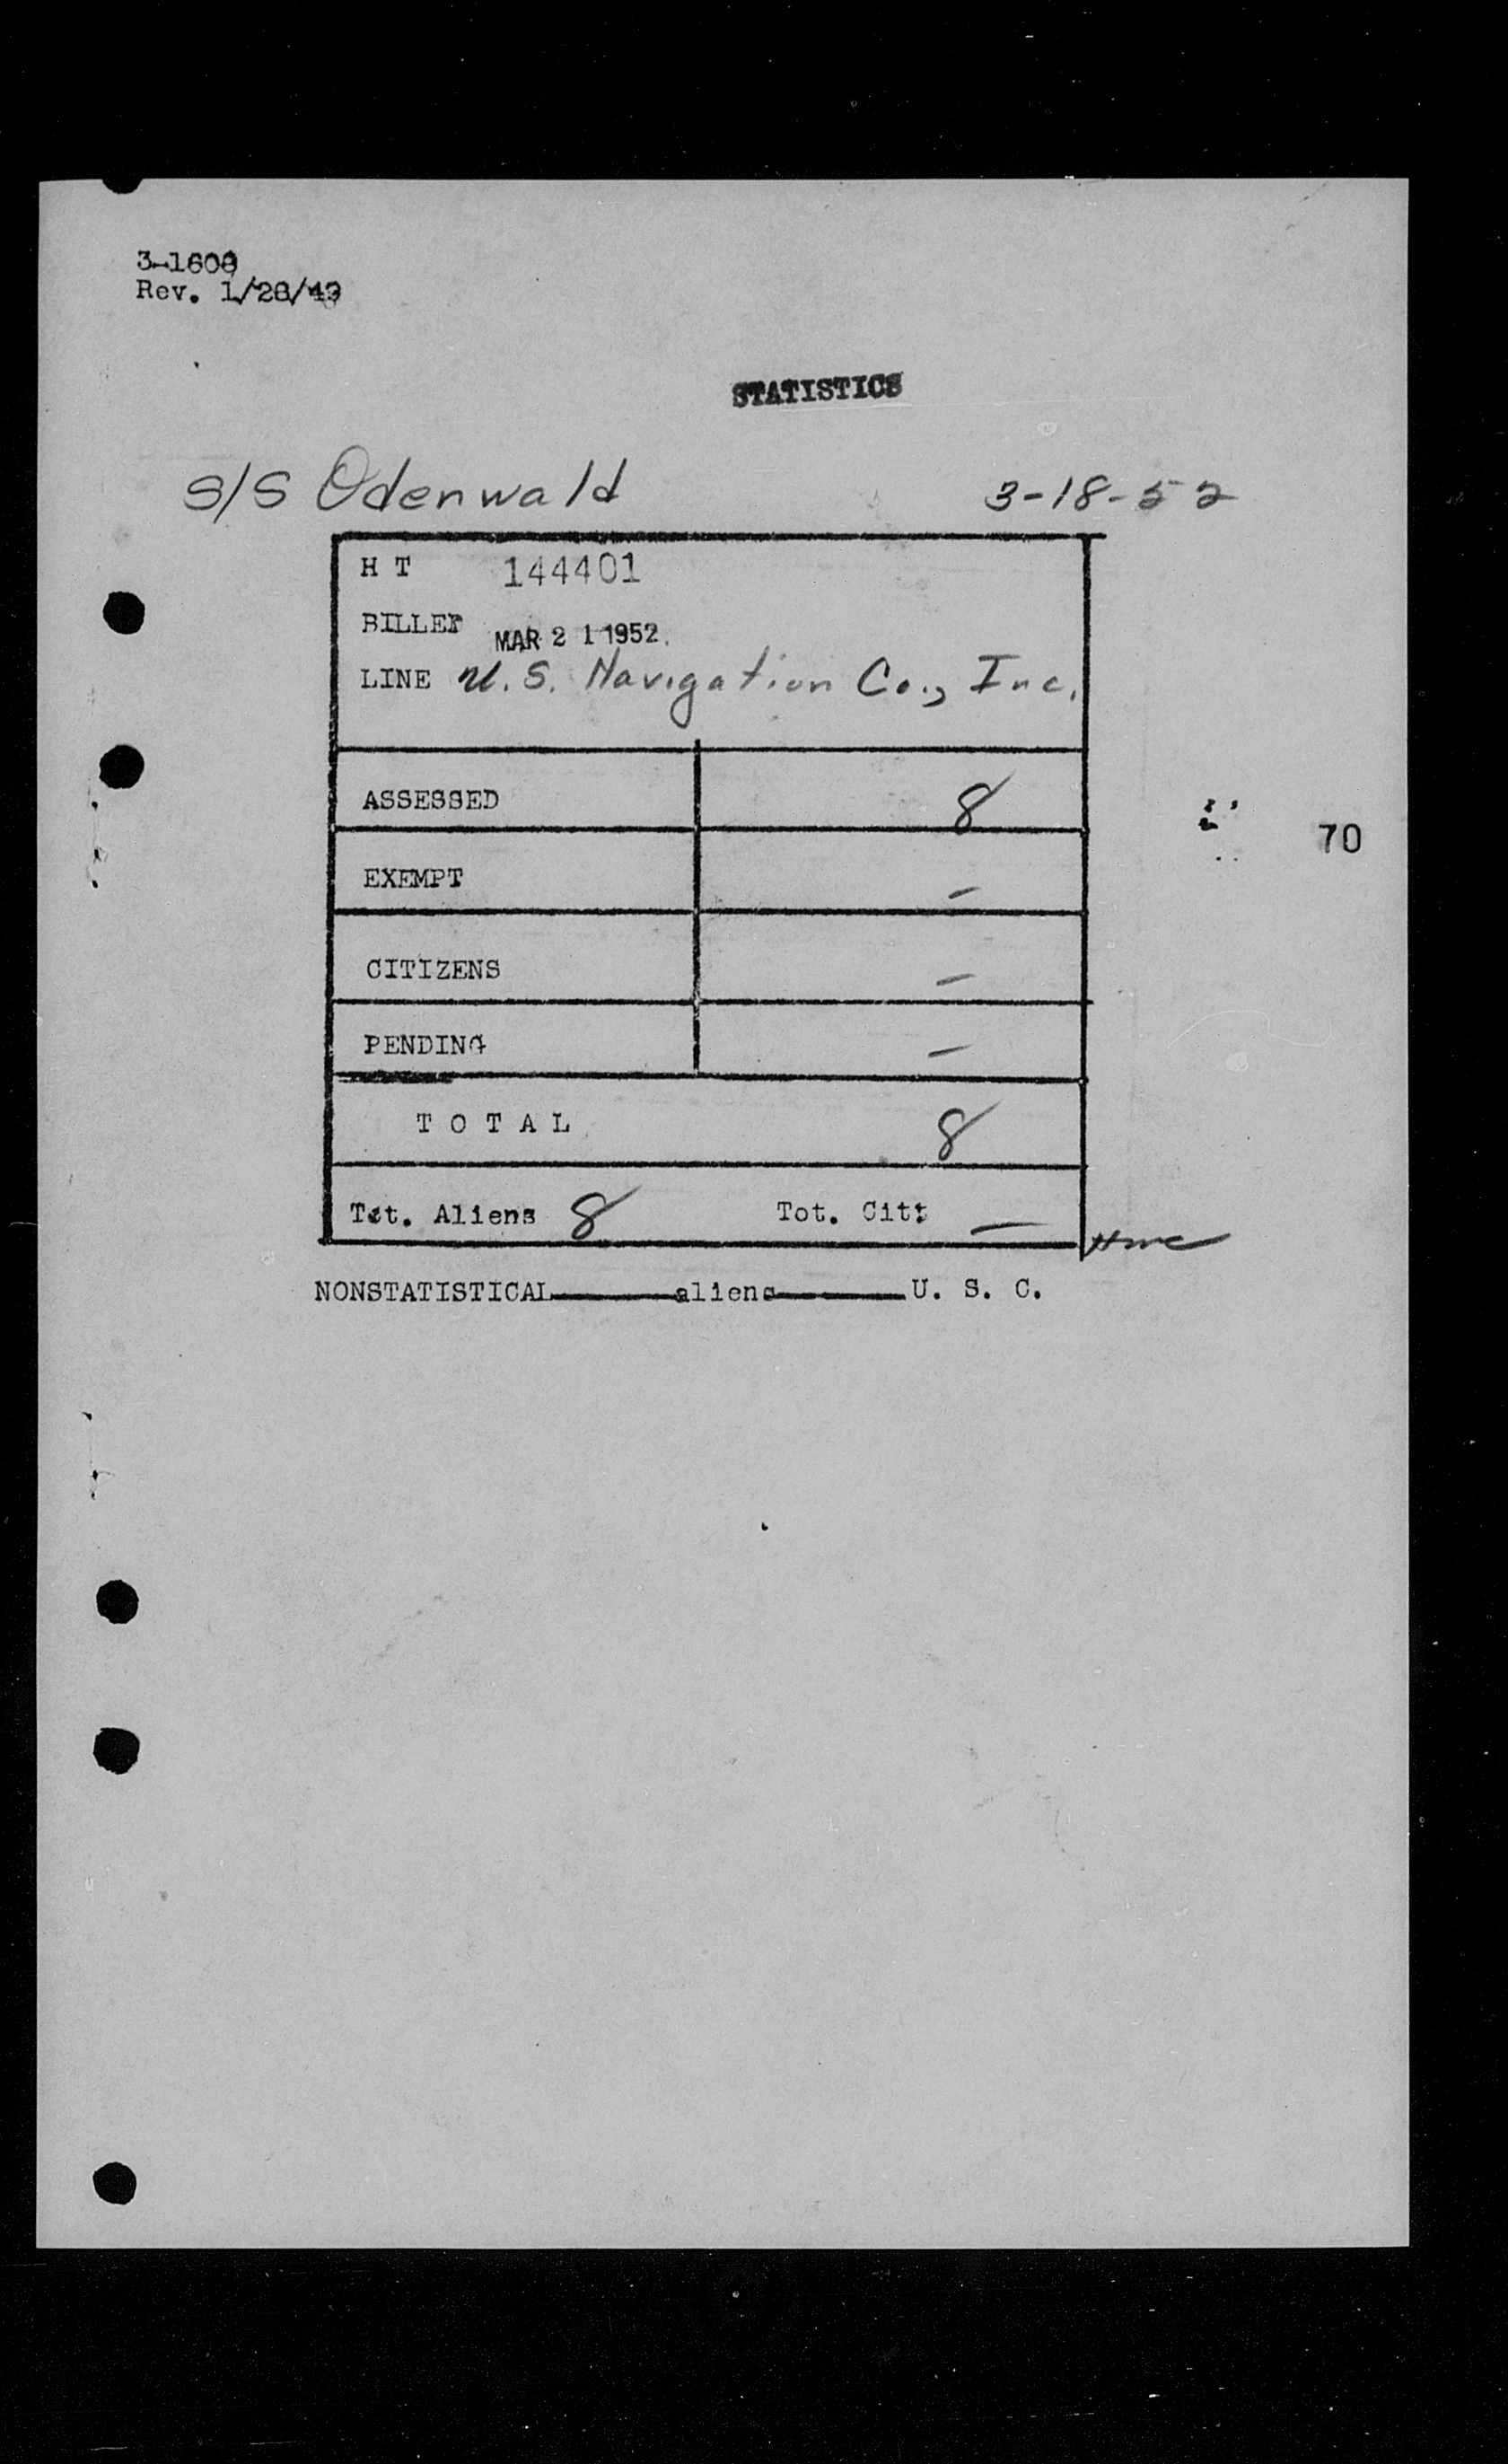 3-1608
Rev. 1/28/49
STATISTICS
S/S Odenwald 3-18-52
H T 144401
BILLED MAR 21 1952
LINE U.S. Navigation Co., Inc.
ASSESSED 8
EXEMPT –
CITIZENS –
PENDING –
70
T O T A L 8
Tot. Aliens 8 Tot. Citz —
NONSTATISTICAL aliens U. S. C.